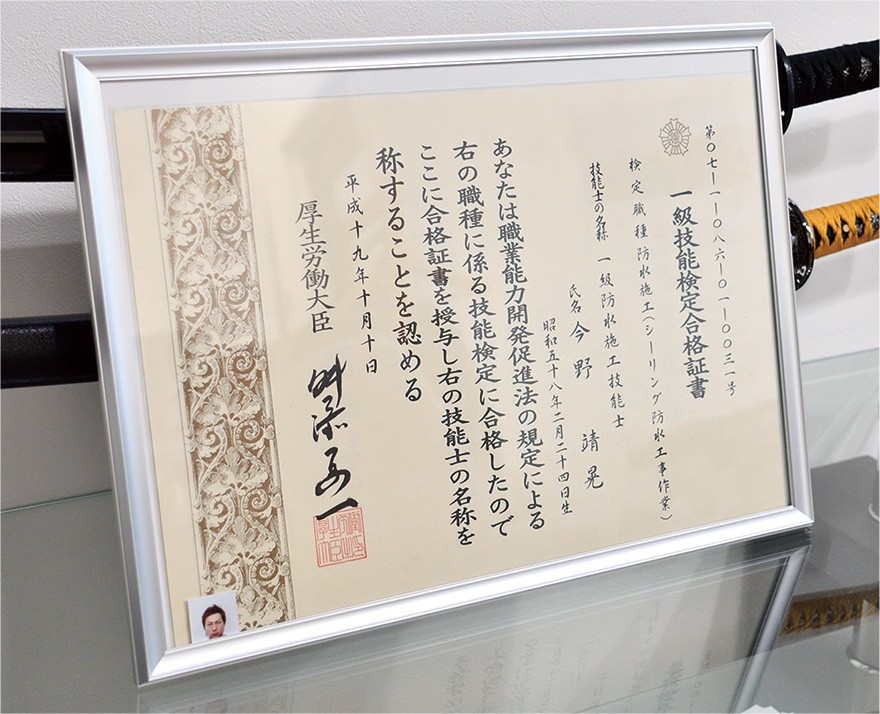 第〇七ー一ー〇八六ー〇一ー〇〇三一号
一級技能検定合格証書
検定職種 防水施工(シーリング防水工事作業)
技能士の名称 一級防水施工技能士
氏名 今野 靖晃
昭和五十八年二月二十四日生
あなたは職業能力開発促進法の規定による
右の職種に係る技能検定に合格したので
ここに合格証書を授与し右の技能士の名称を
称することを認める
平成十九年十月十日
厚生労働大臣 舛添要一